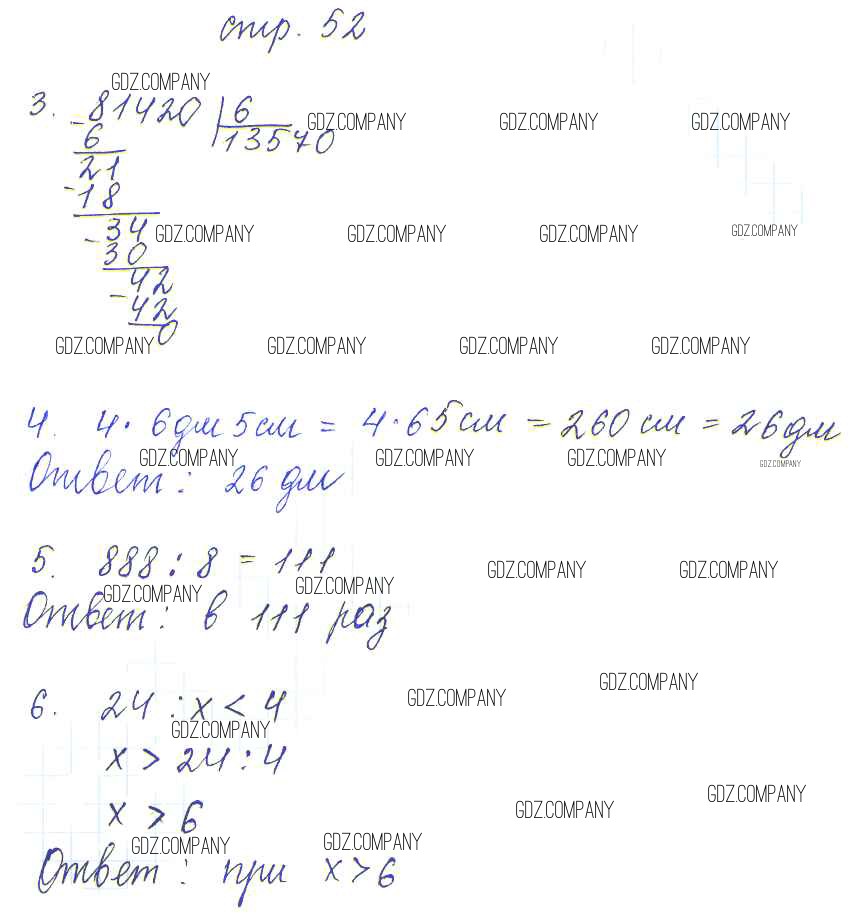 стр. 52
GDZ.COMPANY
3. -81420 |6
6 13570
GDZ.COMPANY GDZ.COMPANY GDZ.COMPANY
21
-18
34
GDZ.COMPANY GDZ.COMPANY GDZ.COMPANY GDZ.COMPANY
-30
42
-42
0
GDZ.COMPANY GDZ.COMPANY GDZ.COMPANY GDZ.COMPANY
4. 4· 6дм 5см = 4·65см = 260 см = 26дм
GDZ.COMPANY GDZ.COMPANY GDZ.COMPANY GDZ.COMPANY
Ответ: 26 дм
5. 888 : 8 = 111
GDZ.COMPANY GDZ.COMPANY GDZ.COMPANY GDZ.COMPANY
Ответ: в 111 раз
GDZ.COMPANY GDZ.COMPANY
6. 24 : x < 4
GDZ.COMPANY
x > 24 : 4
GDZ.COMPANY GDZ.COMPANY
x > 6
GDZ.COMPANY GDZ.COMPANY
Ответ: при x>6